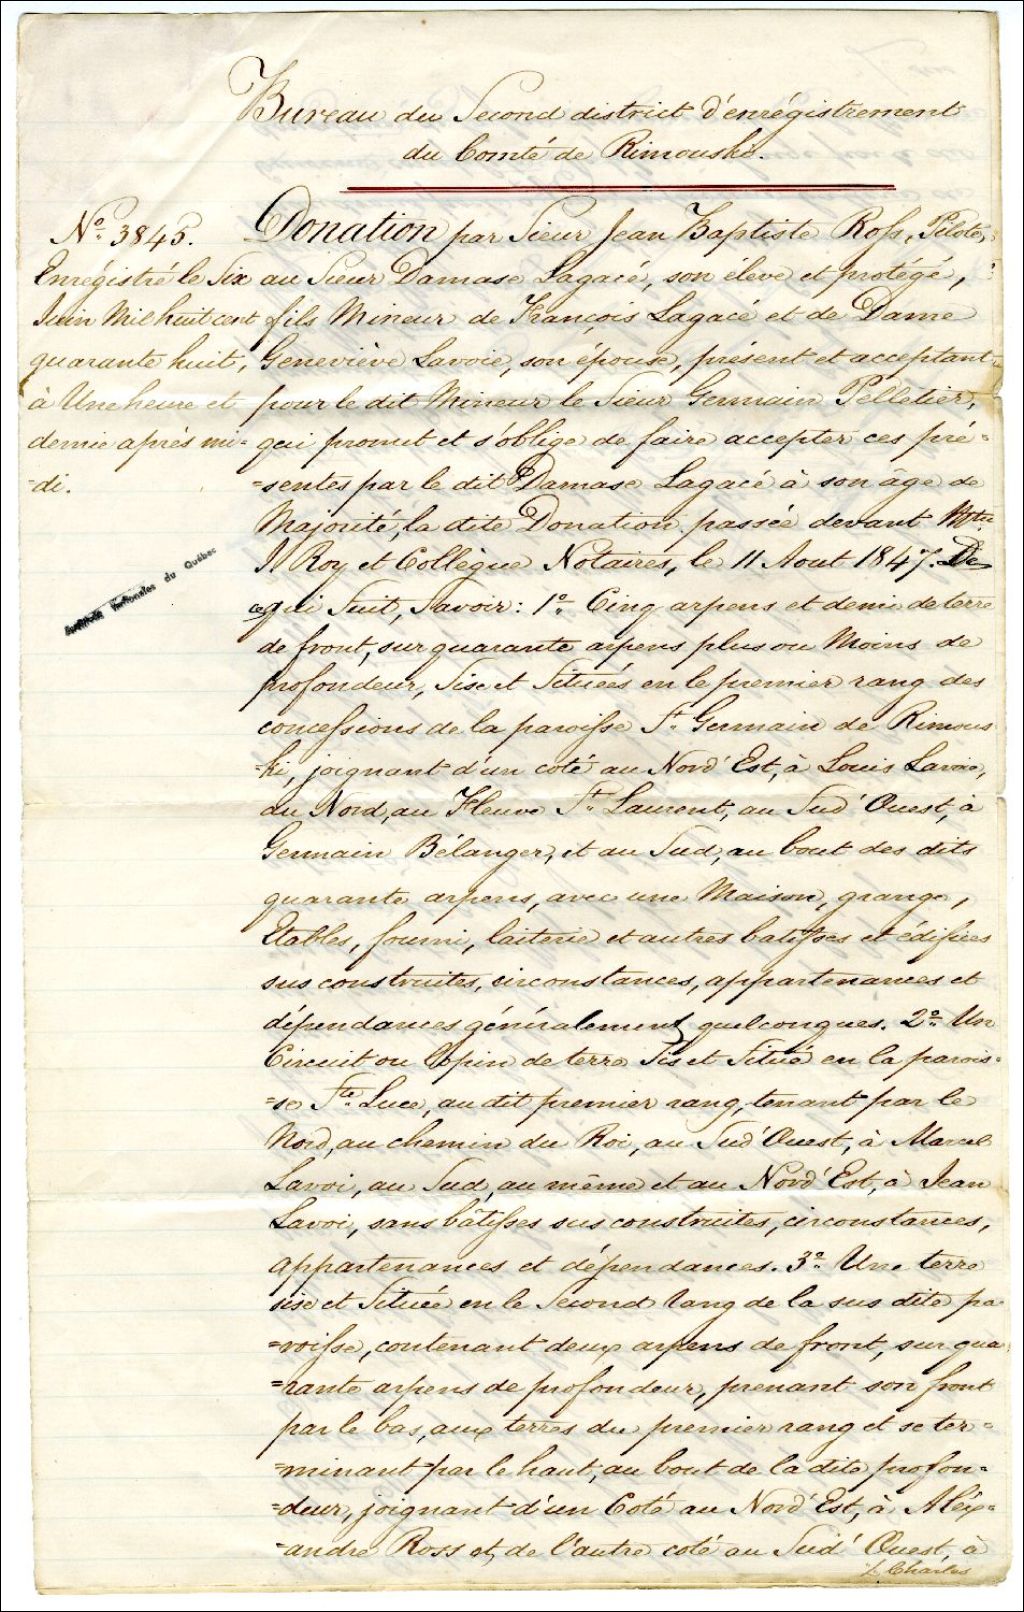 Bureau du Second district d'enrégistrement
du Comté de Rimouski.
No. 3845.
Enrégistré le Six
Juin Mil huit cent
quarante huit,
à Une heure et
demie après mi=
=di.
Donation par Sieur Jean Baptiste Ross, Pilote,
au Sieur Damase Lagacé, son éleve et protégé,
fils Mineur de François Lagacé et de Dame
Geneviève Lavoie, son épouse, présent et acceptant
pour le dit Mineur le Sieur Germain Pelletier,
qui promet et s'oblige de faire accepter ces pré=
=sentes par le dit Damase Lagacé à son âge de
Majorité, la dite Donation passée devant Mtre
J Roy et Collègue Notaires, le 11 Aout 1847. De
ce qui Suit, Savoir: 1o. Cinq arpens et demi de terre
de front, sur quarante arpens plus ou Moins de
profondeur, Sise et Situées en le premier rang des
concessions de la paroisse St. Germain de Rimous
=ki, joignant d'un coté au Nord' Est, à Louis Lavoie,
au Nord, au Fleuve St. Laurent, au Sud' Ouest, à
Germain Bélanger, et au Sud, au bout des dits
quarante arpens, avec une Maison, grange,
Etables, fourni, laiterie et autres batisses et édifices
sus construites, circonstances, appartenances et
dépendances généralement quelconques. 2o. Un
Circuit ou lopin de terre Sis et Situé en la parois=
=se Ste. Luce, au dit premier rang, tenant par le
Nord, au chemin du Roi, au Sud' Ouest, à Marcel
Lavoi, au Sud, au même et au Nord' Est, à Jean
Lavoi, sans bâtisses sus construites, circonstances,
appartenances et dépendances. 3o. Une terre
sise et Située en le Second rang de la sus dite pa
=roisse, contenant deux arpens de front, sur qua
=rante arpens de profondeur, prenant son front
par le bas, aux terres du premier rang et se ter=
=minant par le haut, au bout de la dite profon=
=deur, joignant d'un Coté au Nord' Est, à Aléx=
=andre Ross et, de l'autre coté au Sud' Ouest, à
Charles
Nationales du Québec